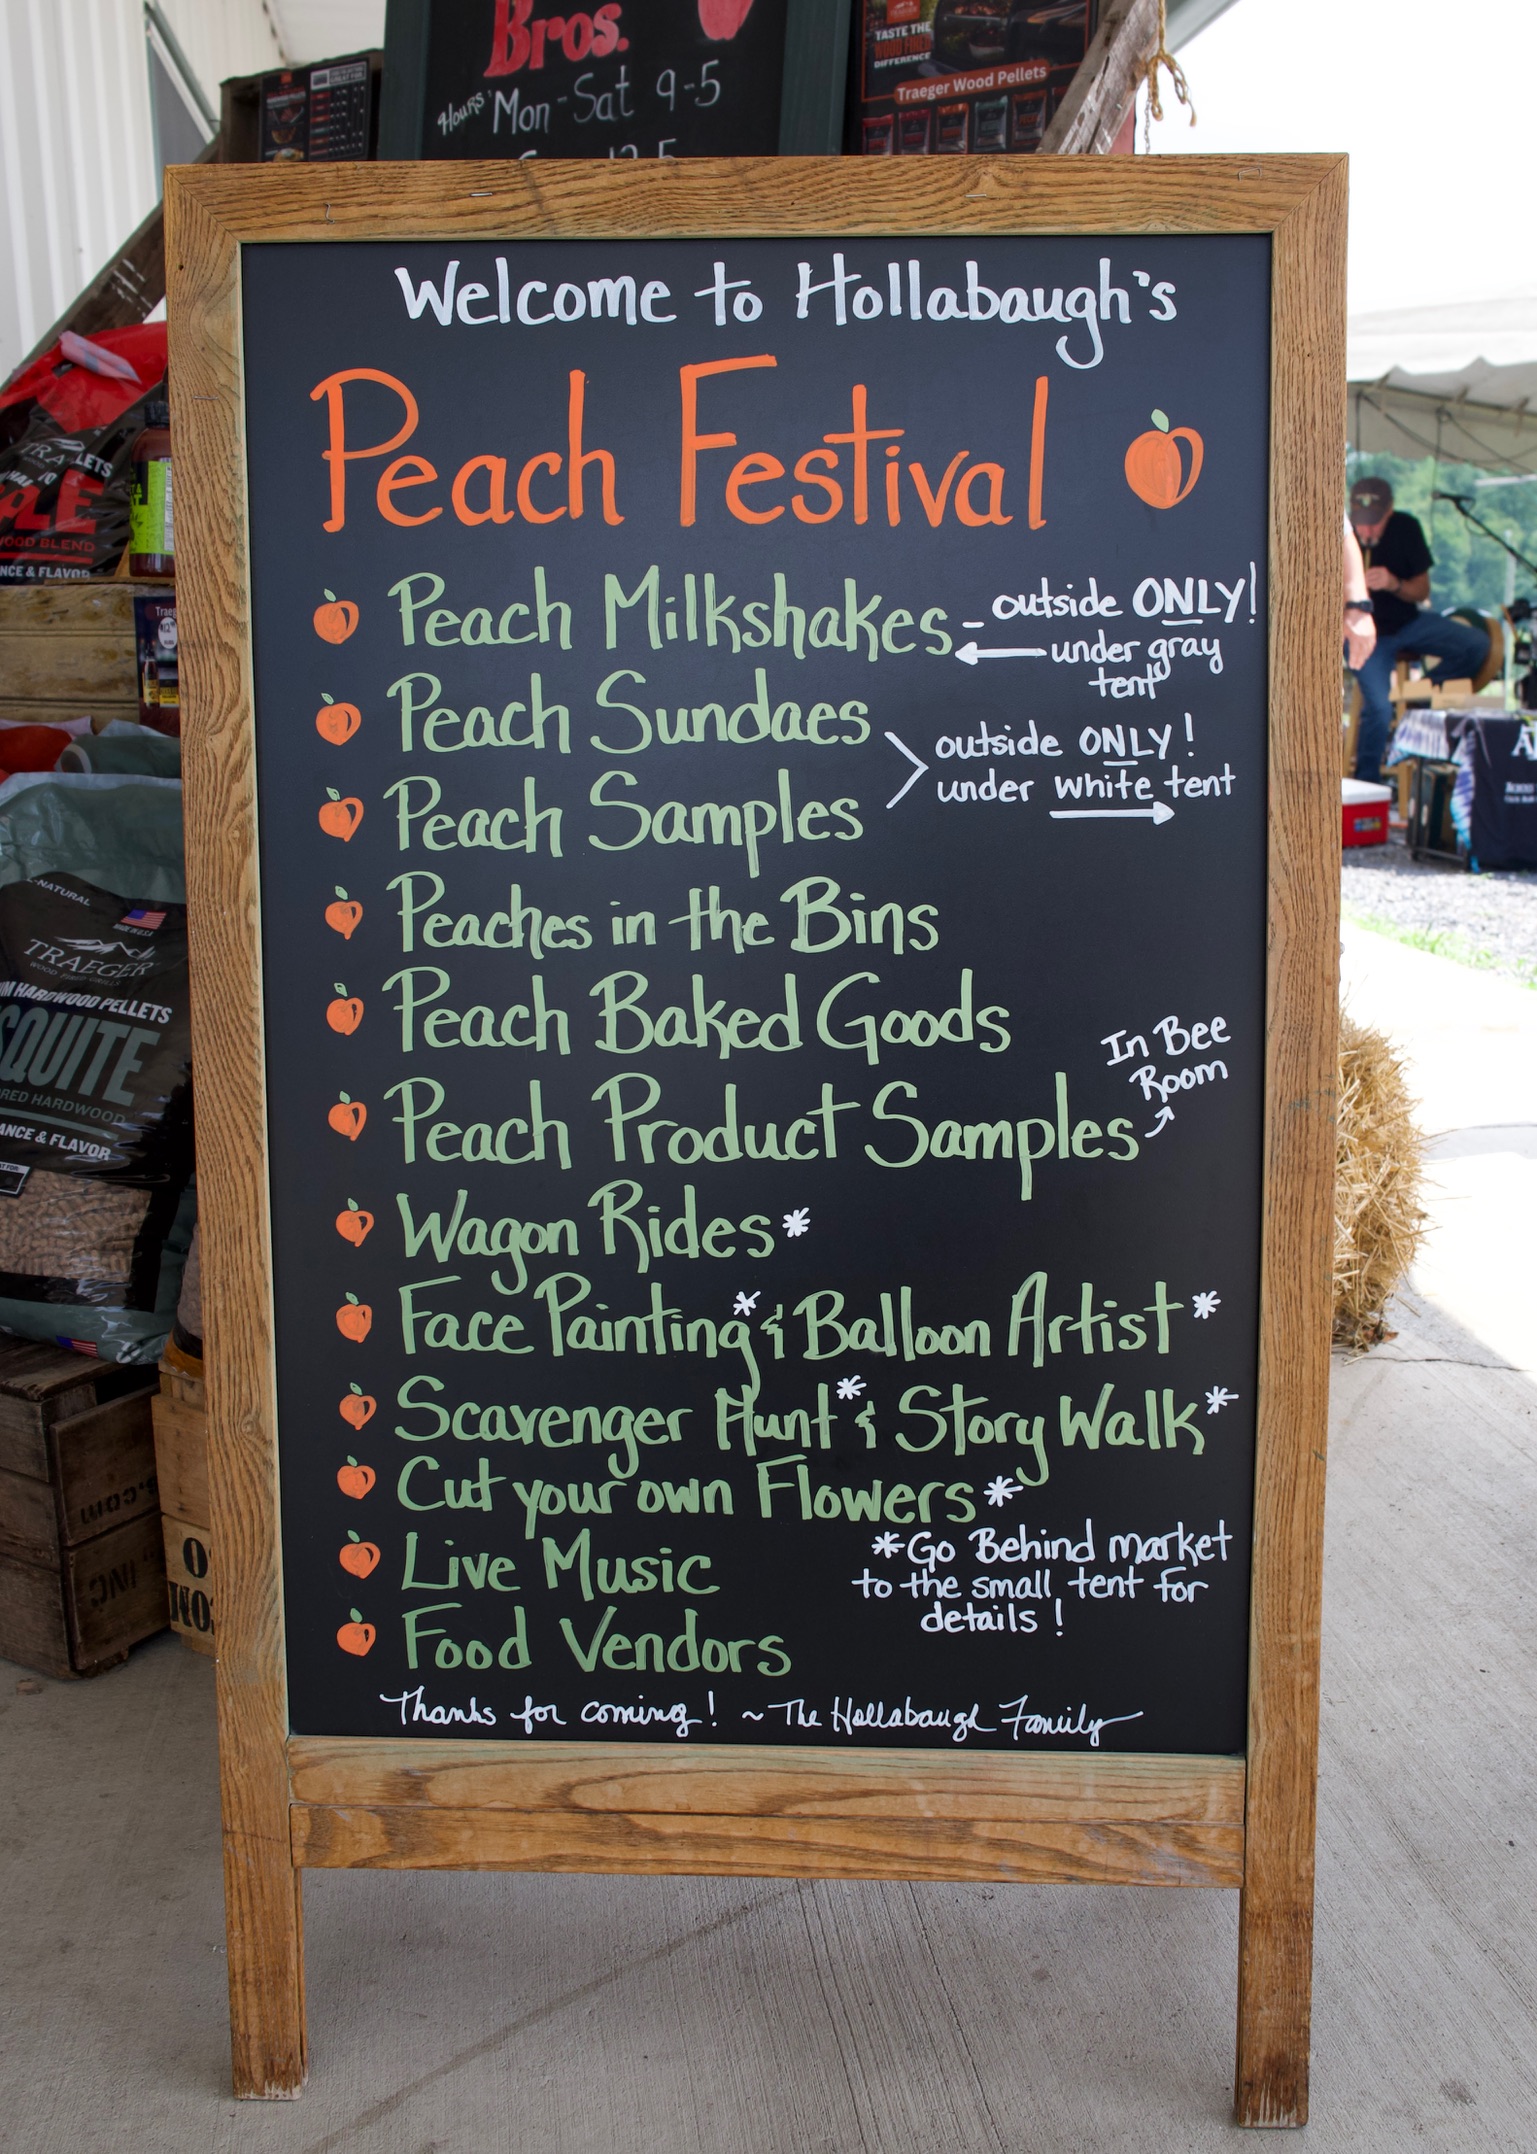 Bros.
Hours: Mon-Sat 9-5
TASTE THE
WOOD FIRED
DIFFERENCE
Traeger Wood Pellets
Welcome to Hollabaugh's
Peach Festival
Peach Milkshakes - outside ONLY!
under gray
tent
Peach Sundaes
Peach Samples
outside ONLY!
under white tent
Peaches in the Bins
Peach Baked Goods
Peach Product Samples
In Bee
Room
Wagon Rides*
Face Painting* & Balloon Artist*
Scavenger Hunt* & Story Walk*
Cut your own Flowers*
Live Music
Food Vendors
*Go Behind market
to the small tent for
details!
Thanks for coming! ~ The Hollabaugh Family
WOOD BLEND
NCE & FLAVOR
-NATURAL
MADE IN U.S.A.
TRAEGER
WOOD FIRED GRILLS
M HARDWOOD PELLETS
SQUITE
RED HARDWOOD
ANCE & FLAVOR